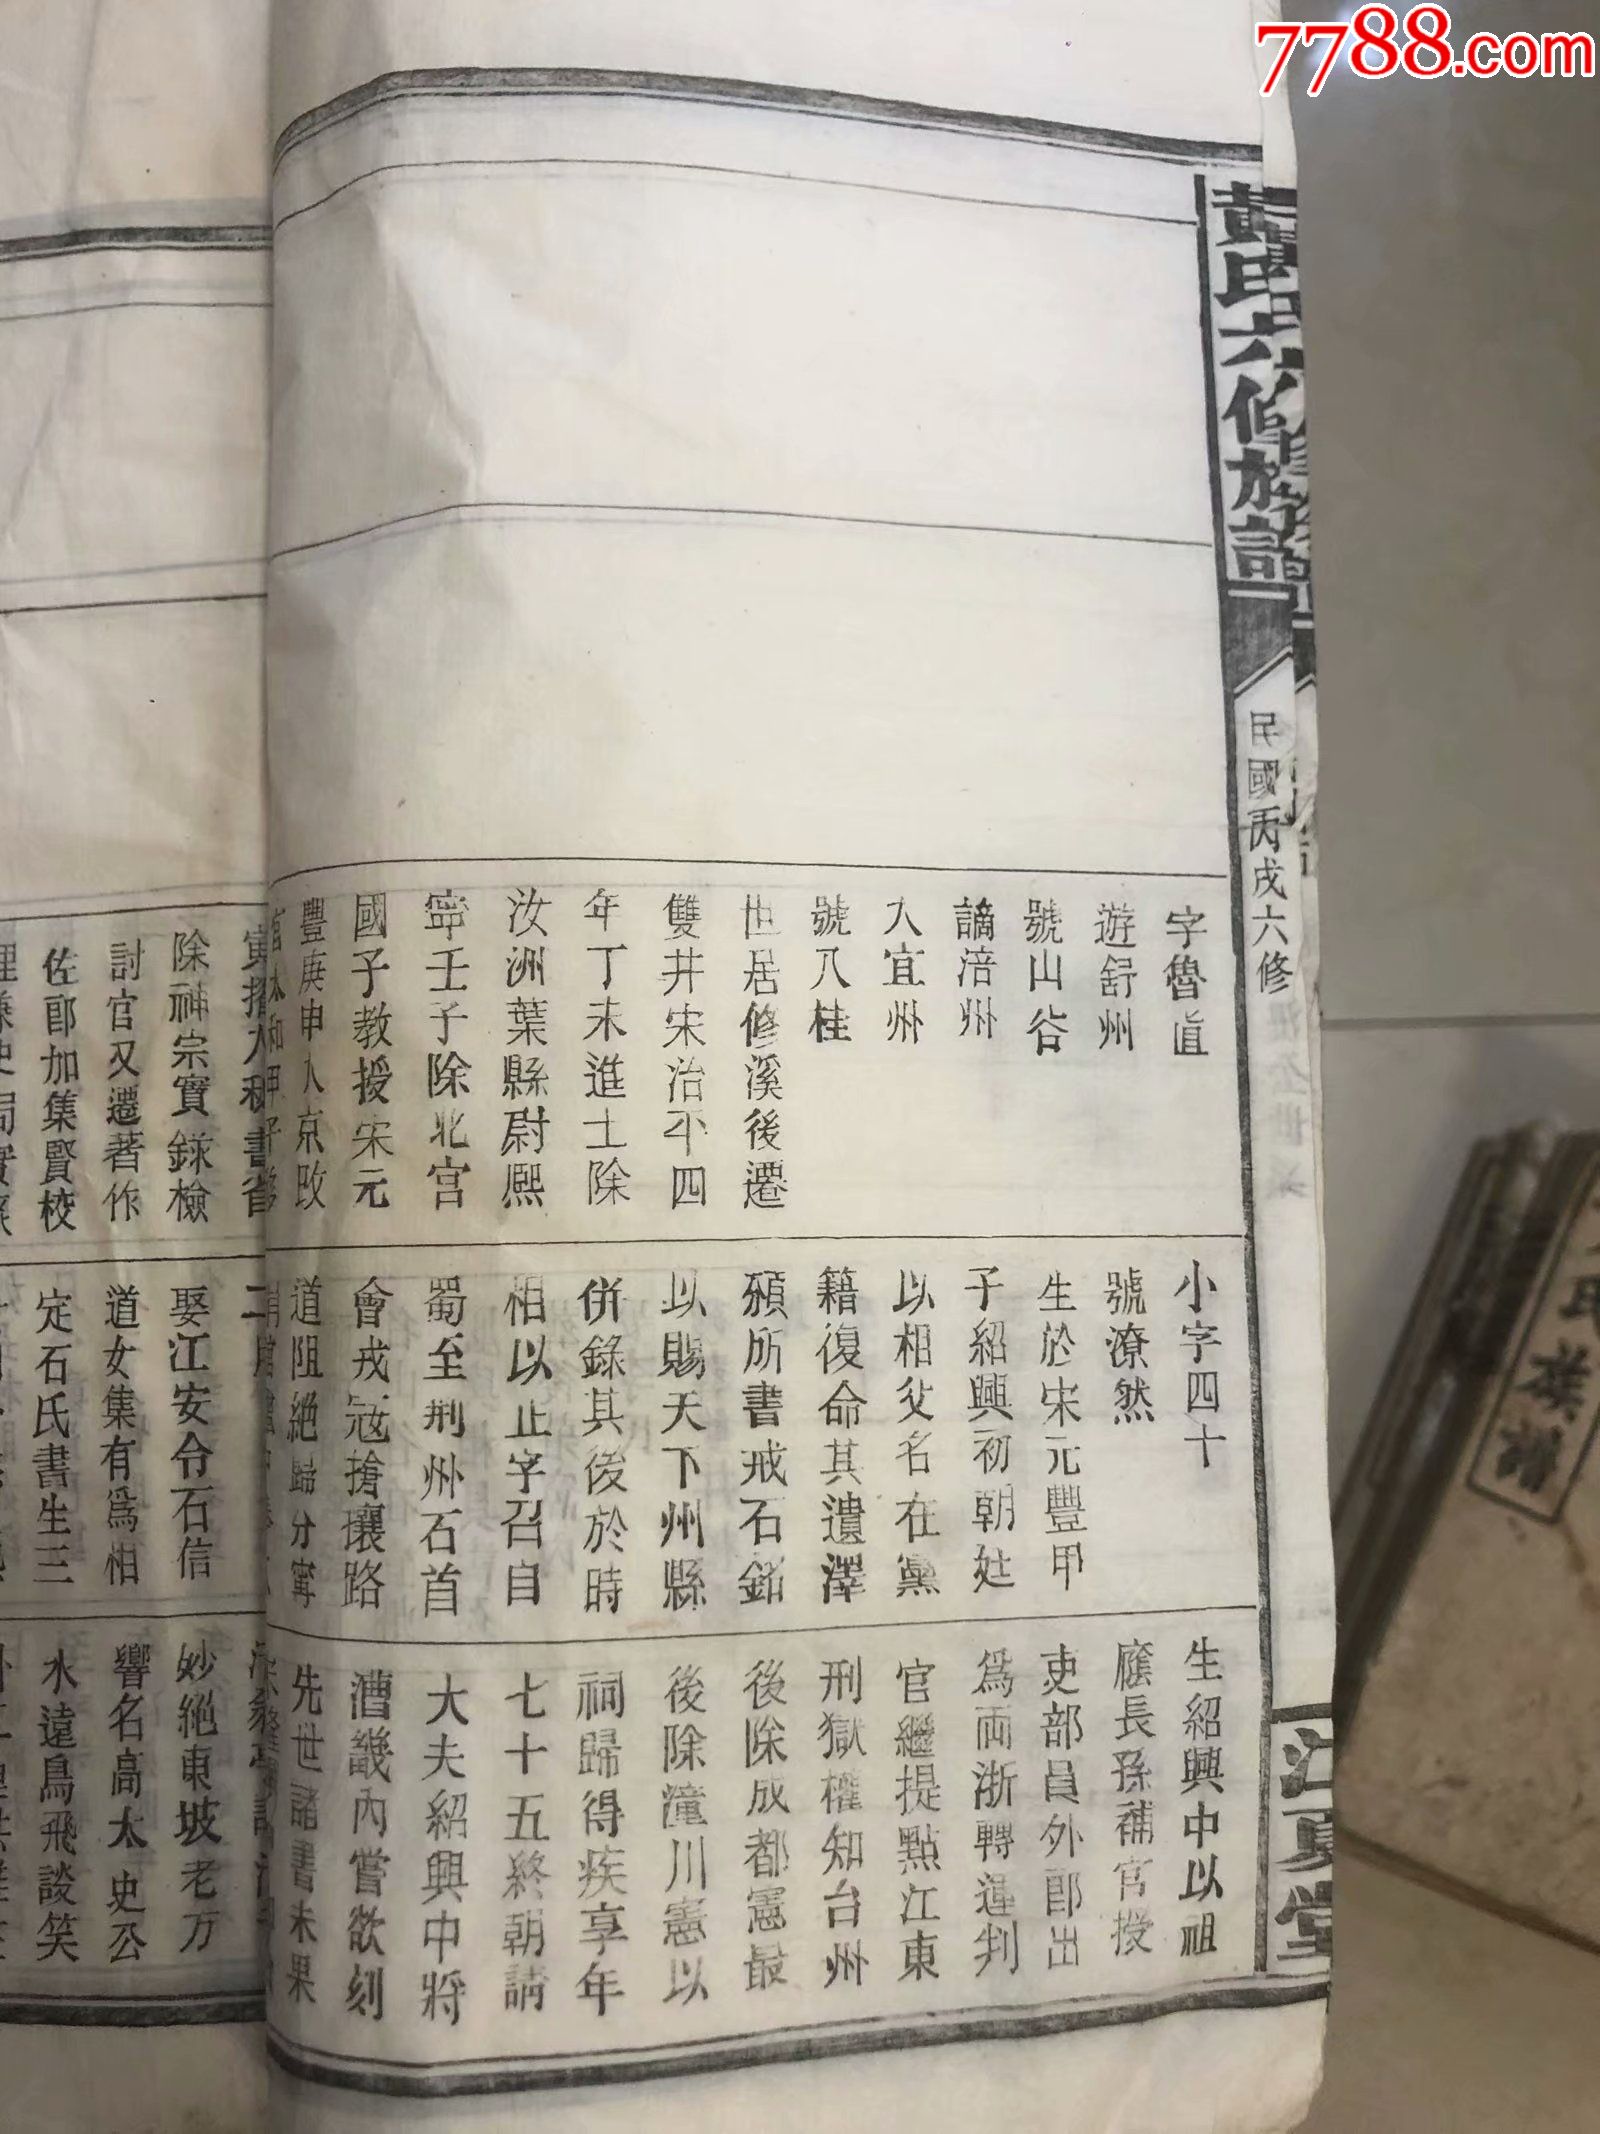 7788.com
黃氏六修族譜
民國丙戌六修
江夏堂
字魯直
遊舒州
號山谷
謫涪州
入宜州
號八桂
世居修溪後遷
雙井宋治平四
年丁未進士除
汝洲葉縣尉熙
寧壬子除北宮
國子教授宋元
豐庚申入京改
除神宗實錄檢
討官又遷著作
佐郎加集賢校
小字四十
號潦然
生於宋元豐甲
子紹興初朝廷
以相父名在黨
籍復命其遺澤
頒所書戒石銘
以賜天下州縣
併錄其後於時
相以止字召自
蜀至荆州石首
會戎冦搶攘路
道阻絕歸分寗
娶江安令石信
道女集有為相
定石氏書生三
生紹興中以祖
廕長孫補官授
吏部員外郎出
為両浙轉運判
官繼提點江東
刑獄權知台州
後除成都憲最
後除潼川憲以
祠歸得疾享年
七十五終朝請
大夫紹興中將
漕畿內嘗欲刻
先世諸書未果
妙絕東坡老万
響名高太史公
水遠鳥飛談笑
氏族譜